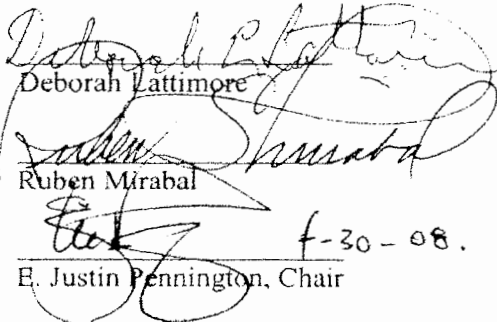 Deborah Lattimore
Deborah Lattimore
Ruben Mirabal
Ruben Mirabal
-30-08.
E. Justin Pennington, Chair